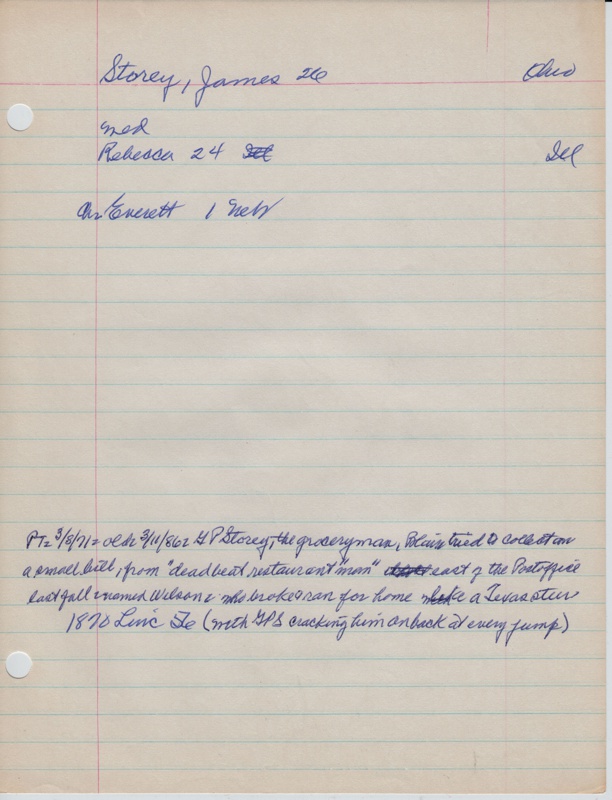 Storey, James 26 Ohio
med
Rebecca 24 Ill Ill
Everett 1 Neb
3/8/71 = 3/11/86 G P Storey, the groceryman, tried to collect on
a small bill, from "deadbeat restaurant man" east of the Postoffice
last fall named Wilson who broke & ran for home like a Texas steer
1870 Linc Te (with GPS cracking him on back at every jump)